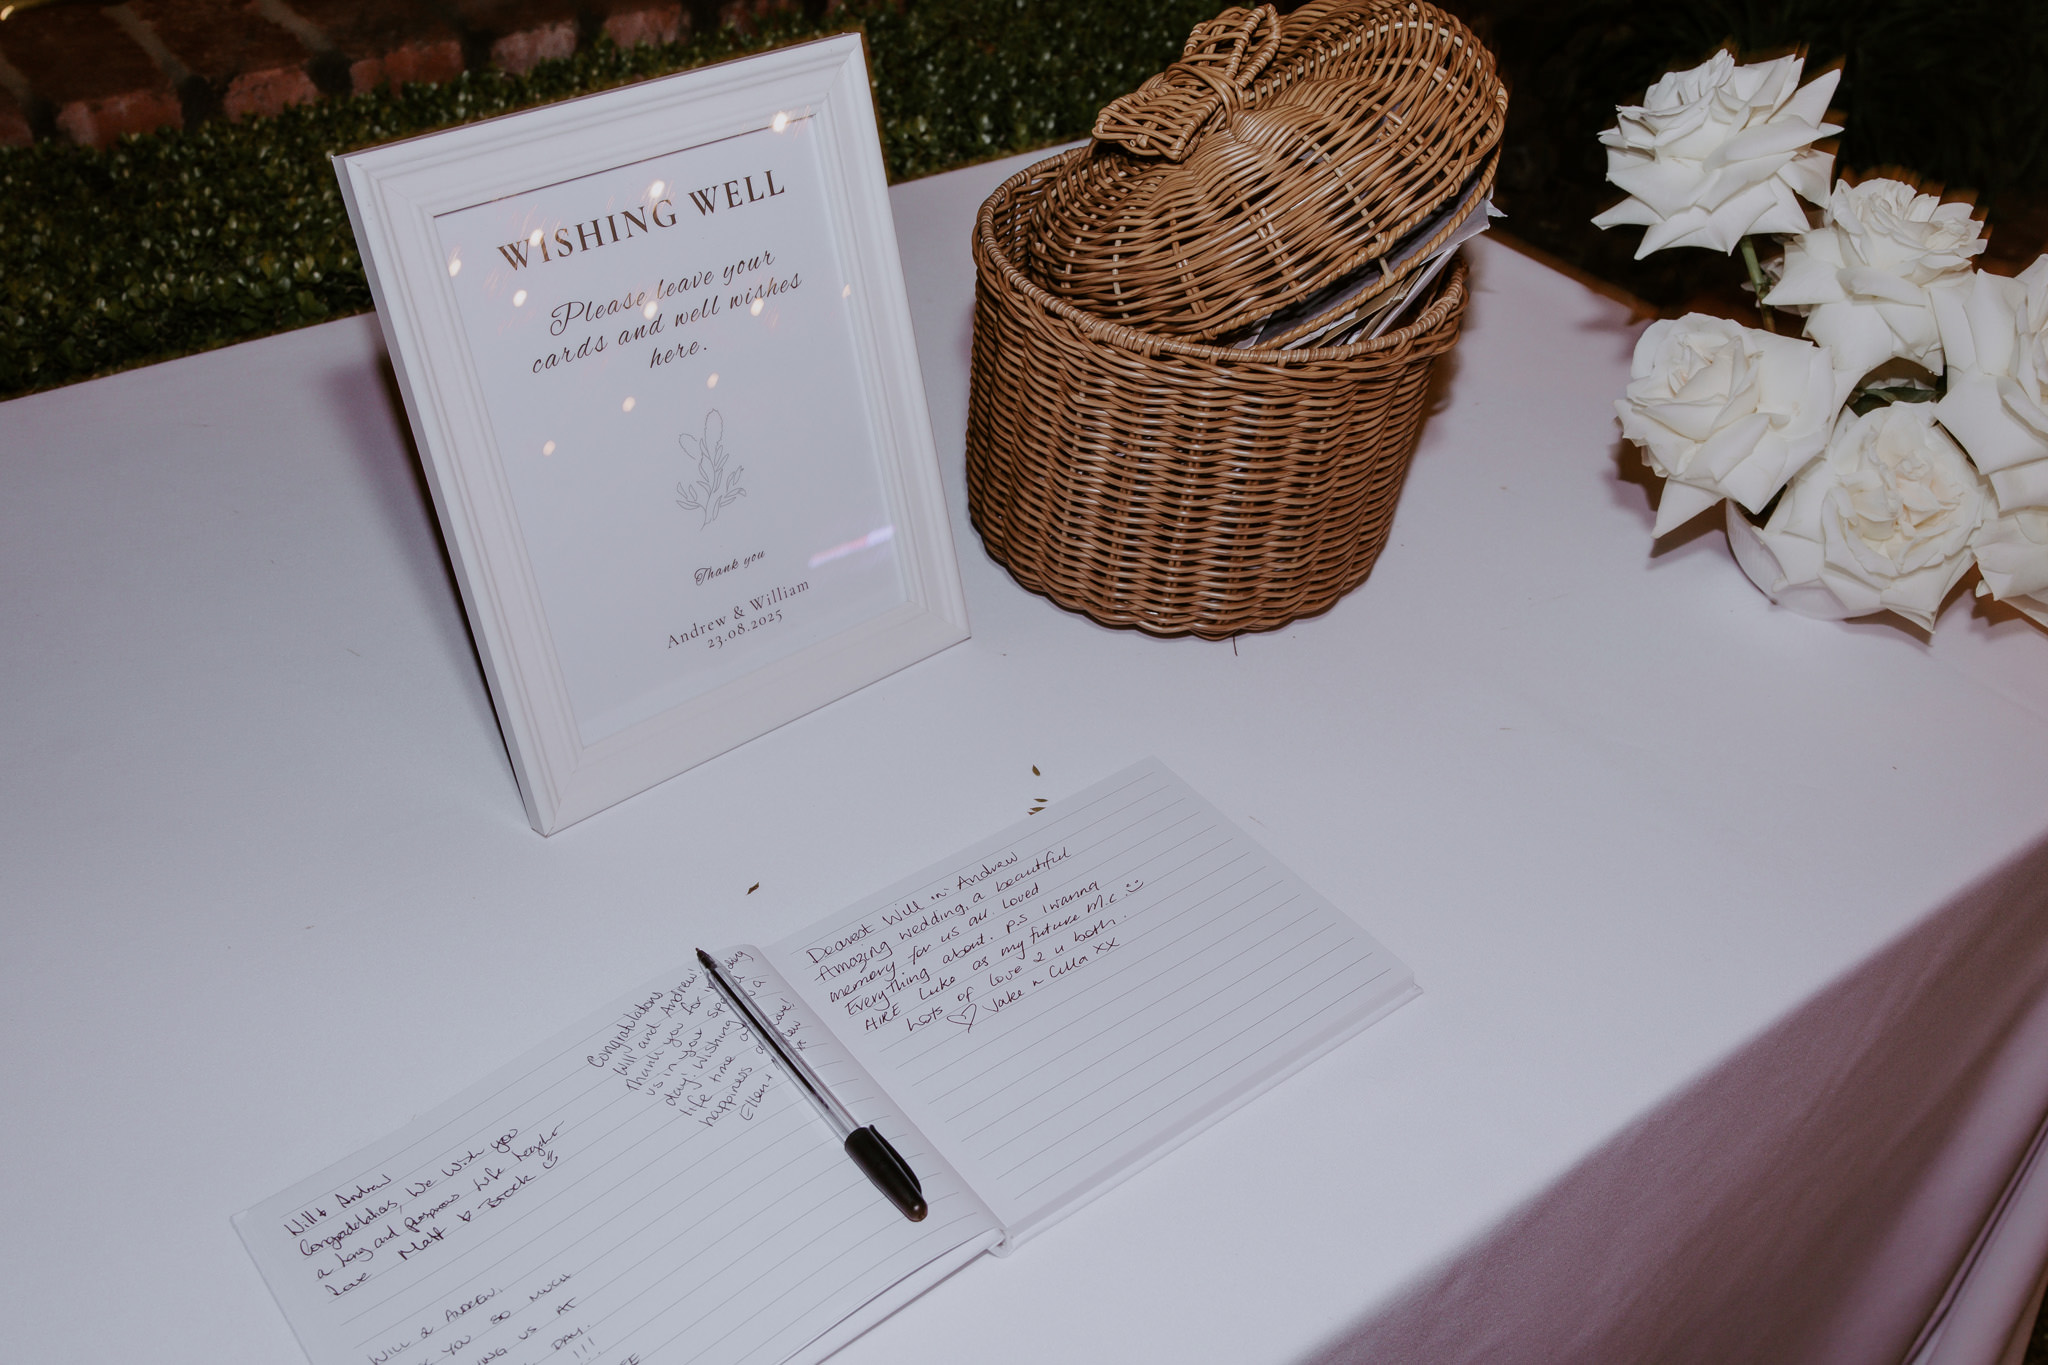 WISHING WELL
Please leave your
cards and well wishes
here.
Thank you
Andrew & William
23.08.2025
Will & Andrew
Congratulations, We Wish you
a long and prosperous life together
Love Matt & Brock
WILL & ANDREW.
YOU SO MUCH
US AT
DAY.
!!!
Congratulations
Will and Andrew!
Thank you for
us in your
day! Wishing
life time of
happiness
Ellen +
Dearest Will n Andrew
Amazing wedding, a beautiful
memory for us all. Loved
Everything about. P.S I wanna
HIRE Luke as my future M.C.
Lots of Love 2 u both.
Jake n Cilla xx